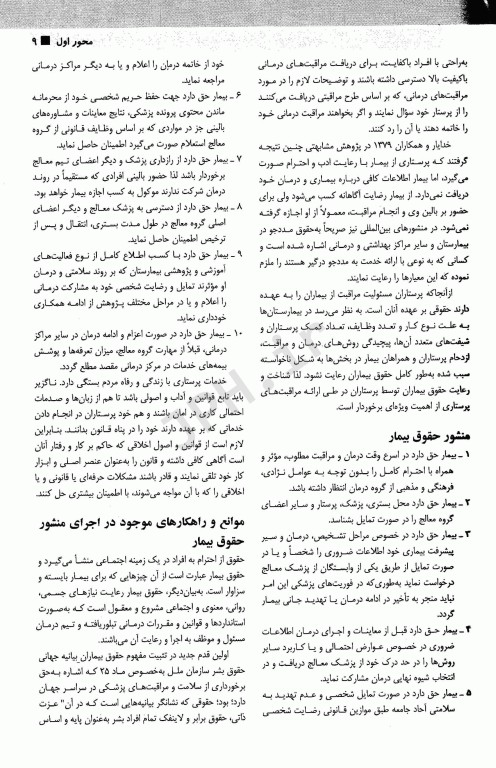 محور اول ■ ۹
به‌راحتی با افراد باکفایت، برای دریافت مراقبت‌های درمانی
باکیفیت بالا دسترسی داشته باشند و توضیحات لازم را در مورد
مراقبت‌های درمانی، که بر اساس طرح مراقبتی دریافت می‌کنند
را از پرستار خود سؤال نمایند و اگر بخواهند مراقبت درمانی خود
را خاتمه دهند یا آن را رد کنند.
خدایار و همکاران ۱۳۷۹ در پژوهش مشابهتی چنین نتیجه
گرفتند که پرستاری از بیمار با رعایت ادب و احترام صورت
می‌گیرد، اما بیمار اطلاعات کافی درباره بیماری و درمان خود
دریافت نمی‌دارد. از بیمار رضایت آگاهانه کسب می‌شود ولی برای
حضور بر بالین وی و انجام مراقبت، معمولاً از او اجازه گرفته
نمی‌شود. در منشورهای بین‌المللی نیز صریحاً به‌حقوق مددجو در
بیمارستان و سایر مراکز بهداشتی و درمانی اشاره شده است و
کسانی که به نوعی با ارائه خدمت به مددجو درگیر هستند را ملزم
نموده که این معیارها را رعایت نمایند.
ازآنجاکه پرستاران مسئولیت مراقبت از بیماران را به عهده
دارند حقوقی بر عهده آنان است. به نظر می‌رسد در بیمارستان‌ها
به علت نوع کار و تعدد وظایف، تعداد کمک پرستاران و
شیفت‌های متعدد آن‌ها، پیچیدگی روش‌های درمان و مراقبت،
ازدحام پرستاران و همراهان بیمار در بخش‌ها به شکل ناخواسته
سبب شده به‌طور کامل حقوق بیماران رعایت نشود. لذا شناخت و
رعایت حقوق بیماران توسط پرستاران در طی ارائه مراقبت‌های
پرستاری از اهمیت ویژه‌ای برخوردار است.
منشور حقوق بیمار
۱ ـ بیمار حق دارد در اسرع وقت درمان و مراقبت مطلوب، مؤثر و
همراه با احترام کامل را بدون توجه به عوامل نژادی،
فرهنگی و مذهبی از گروه درمان انتظار داشته باشد.
۲ ـ بیمار حق دارد محل بستری، پزشک، پرستار و سایر اعضای
گروه معالج را در صورت تمایل بشناسد.
۳ ـ بیمار حق دارد در خصوص مراحل تشخیص، درمان و سیر
پیشرفت بیماری خود اطلاعات ضروری را شخصاً و یا در
صورت تمایل از طریق یکی از وابستگان از پزشک معالج
درخواست نماید به‌طوری‌که در فوریت‌های پزشکی این امر
نباید منجر به تأخیر در ادامه درمان یا تهدید جانی بیمار
گردد.
۴ ـ بیمار حق دارد قبل از معاینات و اجرای درمان اطلاعات
ضروری در خصوص عوارض احتمالی و یا کاربرد سایر
روش‌ها را در حد درک خود از پزشک معالج دریافت و در
انتخاب شیوه نهایی درمان مشارکت نماید.
۵ ـ بیمار حق دارد در صورت تمایل شخصی و عدم تهدید به
سلامتی آحاد جامعه طبق موازین قانونی رضایت شخصی
خود از خاتمه درمان را اعلام و یا به دیگر مراکز درمانی
مراجعه نماید.
۶ ـ بیمار حق دارد جهت حفظ حریم شخصی خود از محرمانه
ماندن محتوی پرونده پزشکی، نتایج معاینات و مشاوره‌های
بالینی جز در مواردی که بر اساس وظایف قانونی از گروه
معالج استعلام صورت می‌گیرد اطمینان حاصل نماید.
۷ ـ بیمار حق دارد از رازداری پزشک و دیگر اعضای تیم معالج
برخوردار باشد لذا حضور بالینی افرادی که مستقیماً در روند
درمان شرکت ندارند موکول به کسب اجازه بیمار خواهد بود.
۸ ـ بیمار حق دارد از دسترسی به پزشک معالج و دیگر اعضای
اصلی گروه معالج در طول مدت بستری، انتقال و پس از
ترخیص اطمینان حاصل نماید.
۹ ـ بیمار حق دارد با کسب اطلاع کامل از نوع فعالیت‌های
آموزشی و پژوهشی بیمارستان که بر روند سلامتی و درمان
او مؤثرند تمایل و رضایت شخصی خود به مشارکت درمانی
را اعلام و یا در مراحل مختلف پژوهش از ادامه همکاری
خودداری نماید.
۱۰ ـ بیمار حق دارد در صورت اعزام و ادامه درمان در سایر مراکز
درمانی، قبلاً از مهارت گروه معالج، میزان تعرفه‌ها و پوشش
بیمه‌های خدمات در مرکز درمانی مقصد مطلع گردد.
خدمات پرستاری با زندگی و رفاه مردم بستگی دارد. ناگزیر
باید تابع قوانین و آداب و اصولی باشد تا هم از زیان‌ها و صدمات
احتمالی کاری در امان باشند و هم خود پرستاران در انجام دادن
خدماتی که بر عهده دارند، خود را در پناه قانون بدانند. بنابراین
لازم است از قوانین و اصول اخلاقی که حاکم بر کار و رفتار آنان
است آگاهی کافی داشته و قانون را به‌عنوان عنصر اصلی و ابزار
کار خود تلقی نمایند و قادر باشند مشکلات حرفه‌ای یا قانونی و یا
اخلاقی را که با آن مواجه می‌شوند، با اطمینان بیشتری حل کنند.
موانع و راهکارهای موجود در اجرای منشور
حقوق بیمار
حقوق از احترام به افراد در یک زمینه اجتماعی منشأ می‌گیرد و
حقوق بیمار عبارت است از آن چیزهایی که برای بیمار بایسته و
سزاوار است. به‌بیان‌دیگر، حقوق بیمار رعایت نیازهای جسمی،
روانی، معنوی و اجتماعی مشروع و معقول است که به‌صورت
استانداردها و قوانین و مقررات درمانی تبلوریافته و تیم درمان
مسئول و موظف به اجرا و رعایت آن می‌باشند.
اولین قدم جدید در تثبیت مفهوم حقوق بیماران بیانیه جهانی
حقوق بشر سازمان ملل به‌خصوص ماد ۲۵ که اشاره به‌حق
برخورداری از سلامت و مراقبت‌های پزشکی در سراسر جهان
دارد؛ بود؛ حقوقی که نشانگر بیانیه‌هایی است که در آن" عزت
ذاتی، حقوق برابر و لاینفک تمام افراد بشر به‌عنوان پایه و اساس